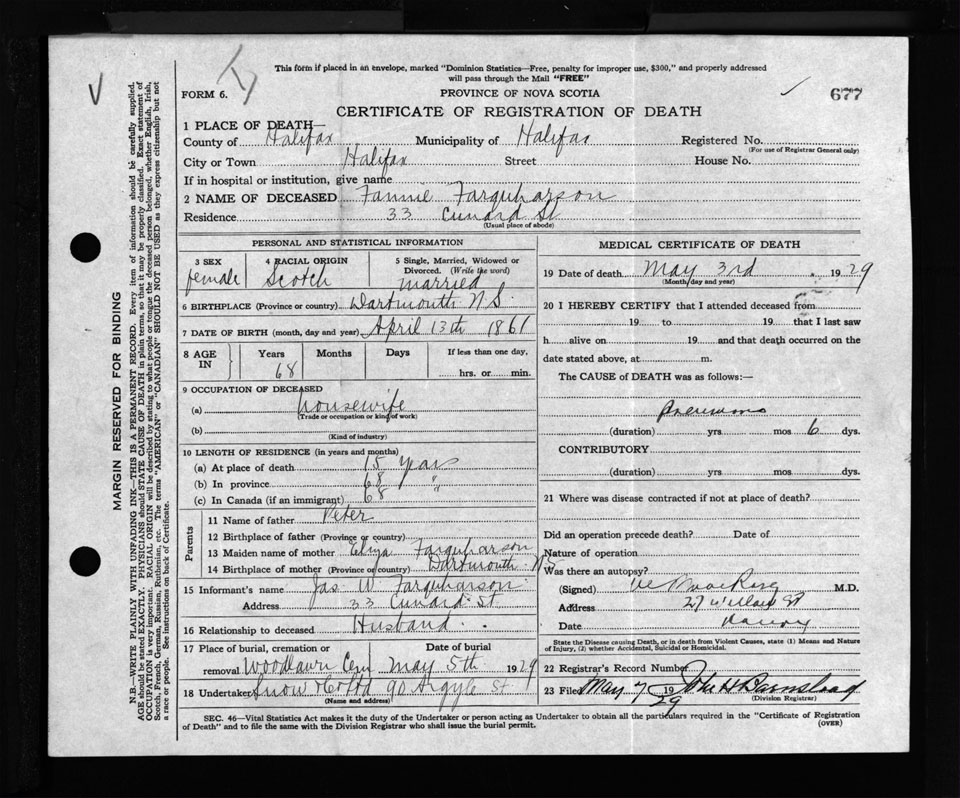 This form if placed in an envelope, marked "Dominion Statistics—Free, penalty for improper use, $300," and properly addressed
will pass through the Mail "FREE"
FORM 6.
PROVINCE OF NOVA SCOTIA
677
CERTIFICATE OF REGISTRATION OF DEATH
1 PLACE OF DEATH—
County of Halifax Municipality of Halifax Registered No.
(For use of Registrar General only)
City or Town Halifax Street House No.
If in hospital or institution, give name
2 NAME OF DECEASED Fannie Farquharson
Residence 33 Cunard St
(Usual place of abode)
PERSONAL AND STATISTICAL INFORMATION
3 SEX female
4 RACIAL ORIGIN Scotch
5 Single, Married, Widowed or Divorced. (Write the word) married
6 BIRTHPLACE (Province or country) Dartmouth N.S.
7 DATE OF BIRTH (month, day and year) April 13th 1861
8 AGE IN Years 68 Months Days If less than one day, hrs. or min.
9 OCCUPATION OF DECEASED
(a) housewife
(Trade or occupation or kind of work)
(b)
(Kind of industry)
10 LENGTH OF RESIDENCE (in years and months)
(a) At place of death 15 years
(b) In province 68 "
(c) In Canada (if an immigrant) 68
Parents
11 Name of father Peter
12 Birthplace of father (Province or country)
13 Maiden name of mother Eliza Farquharson
14 Birthplace of mother (Province or country) Dartmouth N.S
15 Informant's name Jas W. Farquharson
Address 33 Cunard St.
16 Relationship to deceased Husband.
17 Place of burial, cremation or removal Woodlawn Cem Date of burial May 5th 1929
18 Undertaker Snow & Co Ltd 90 Argyle St.
(Name and address)
MEDICAL CERTIFICATE OF DEATH
19 Date of death May 3rd 1929
(Month, day and year)
20 I HEREBY CERTIFY that I attended deceased from
19 to 19 that I last saw
h alive on 19 and that death occurred on the
date stated above, at m.
The CAUSE of DEATH was as follows:—
pneumonia
(duration) yrs mos 6 dys.
CONTRIBUTORY
(duration) yrs mos dys.
21 Where was disease contracted if not at place of death?
Did an operation precede death? Date of
Nature of operation
Was there an autopsy?
(Signed) M.D.
Address 27 St
Date
State the Disease causing Death, or in death from Violent Causes, state (1) Means and Nature
of Injury, (2) whether Accidental, Suicidal or Homicidal.
22 Registrar's Record Number
23 Filed May 7 1929 John H Barnstead
(Division Registrar)
SEC. 46—Vital Statistics Act makes it the duty of the Undertaker or person acting as Undertaker to obtain all the particulars required in the "Certificate of Registration
of Death" and to file the same with the Division Registrar who shall issue the burial permit.
(OVER)
MARGIN RESERVED FOR BINDING
N.B.—WRITE PLAINLY WITH UNFADING INK—THIS IS A PERMANENT RECORD. Every item of information should be carefully supplied.
AGE should be stated EXACTLY. PHYSICIANS should STATE CAUSE OF DEATH in plain terms, so that it may be properly classified. Exact statement of
OCCUPATION is very important. RACIAL ORIGIN will be described by stating to what people or tongue the deceased person belonged, whether English, Irish,
Scotch, French, German, Russian, Ruthenian, etc. The terms "AMERICAN" or "CANADIAN" SHOULD NOT BE USED as they express citizenship but not
a race or people. See instructions on back of Certificate.